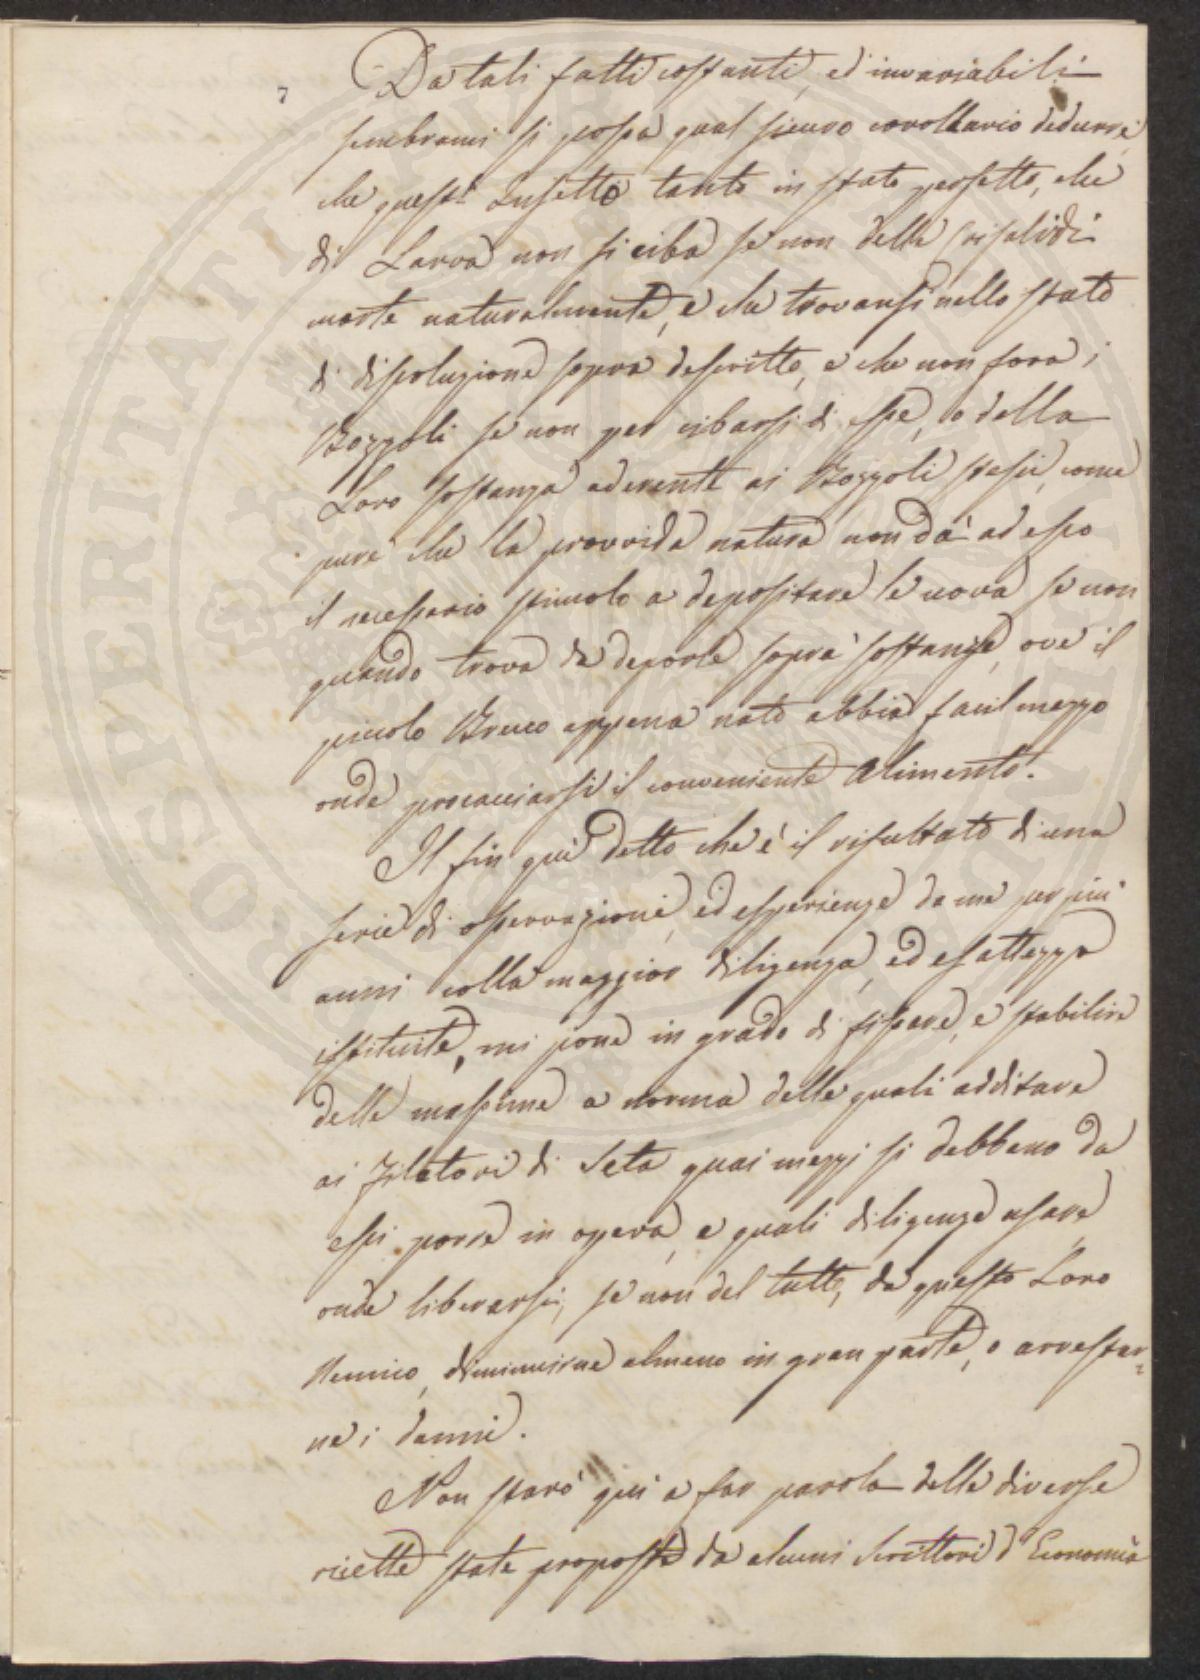 Da tali fatti costanti, ed invariabili
sembrami si possa qual sicuro corollario dedurre,
che quest' Insetto tanto in stato perfetto, che
di Larva non si ciba se non delle Crisalidi
morte naturalmente, e che trovansi nello stato
di dissoluzione sopra descritto, e che non fora i
Bozzoli se non per cibarsi di esse, o della
Loro sostanza aderente ai Bozzoli stessi, come
pure che la provvida natura non dà ad esso
il necessario stimolo a depositare le uova se non
quando trova da deporle sopra sostanze, ove il
piccolo Bruco appena nato abbia facil mezzo
onde procacciarsi il conveniente alimento.
Il fin quì detto che è il risultato di una
serie di osservazioni, ed esperienze da me per più
anni colla maggior diligenza, ed esattezza
istituite, mi pone in grado di fissare, e stabilire
delle massime a norma delle quali additare
ai Filatori di Seta quai mezzi si debbono da
essi porre in opera, e quali diligenze usare
onde liberarsi, se non del tutto, da questo Loro
Nemico, diminuirne almeno in gran parte, o arrestar=
ne i danni.
Non starò quì a far parola delle diverse
ricette state proposte da alcuni Scrittori d'Economia
PROSPERITATI PUBLICAE